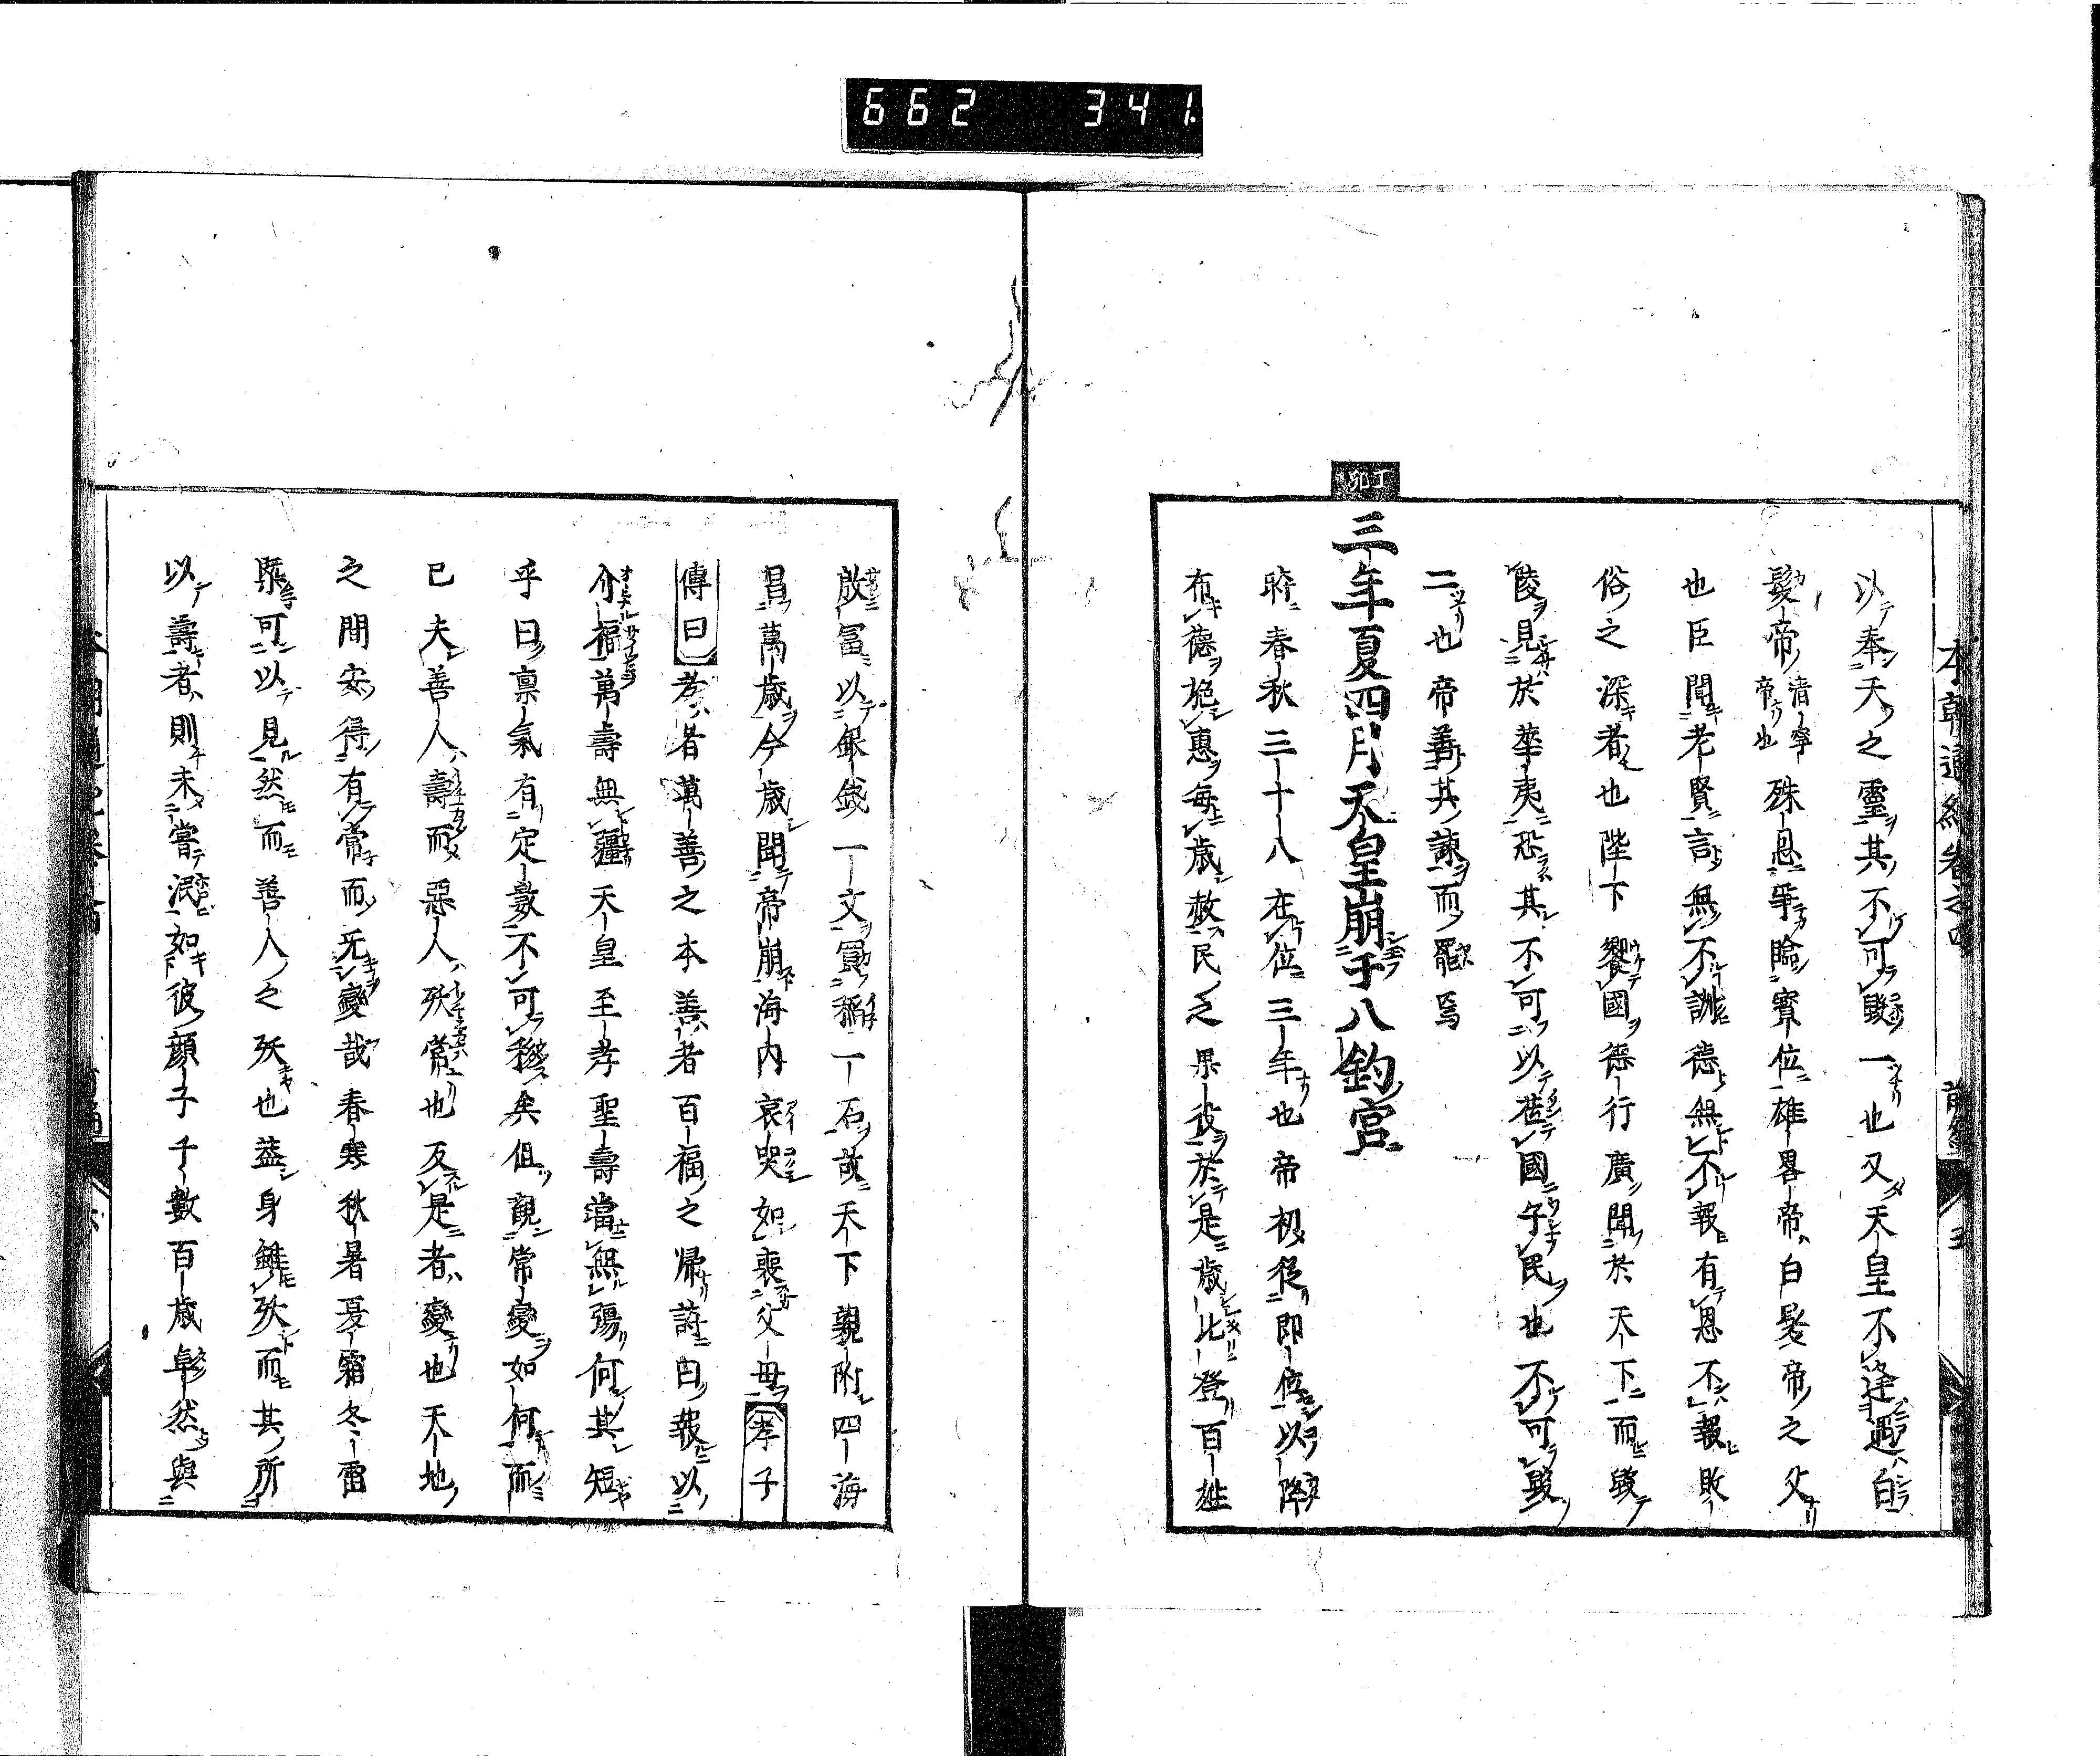 662 341.
本朝通紀卷之四 前編 三
以奉天之靈其不可毀一也又天皇不逢遇白
髮帝清寧帝也殊恩寧臨寶位雄畧帝白髮帝之父
也臣聞老賢言無不訓德無不報有恩不報敗
俗之深者也陛下饗國德行廣聞於天下而毀
陵見於華夷恐其不可以莅國子民也不可毀
二也帝善其諫而罷焉
丁卯
三年夏四月天皇崩于八釣宮
時春秋三十八在位三年也帝初從即位以降
布德施惠每歲赦民之果役於是歲比登百姓
殷富以銀錢一文買稻一石故天下親附四海
昌萬歲今歲聞帝崩海內哀哭如喪父母孝子
傳曰孝者萬善之本善者百福之歸詩曰報以
介福萬壽無疆天皇至孝聖壽當無彊何其短
乎曰稟氣有定數不可移矣但觀常變如何而
已夫善人壽而惡人殀常也反是者變也天地
之間安得有常而无變哉春寒秋暑夏霜冬雷
槩可以見然而善人之殀也蓋身雖殀而其所
以壽者則未嘗泯如彼顏子千數百歲卓然與